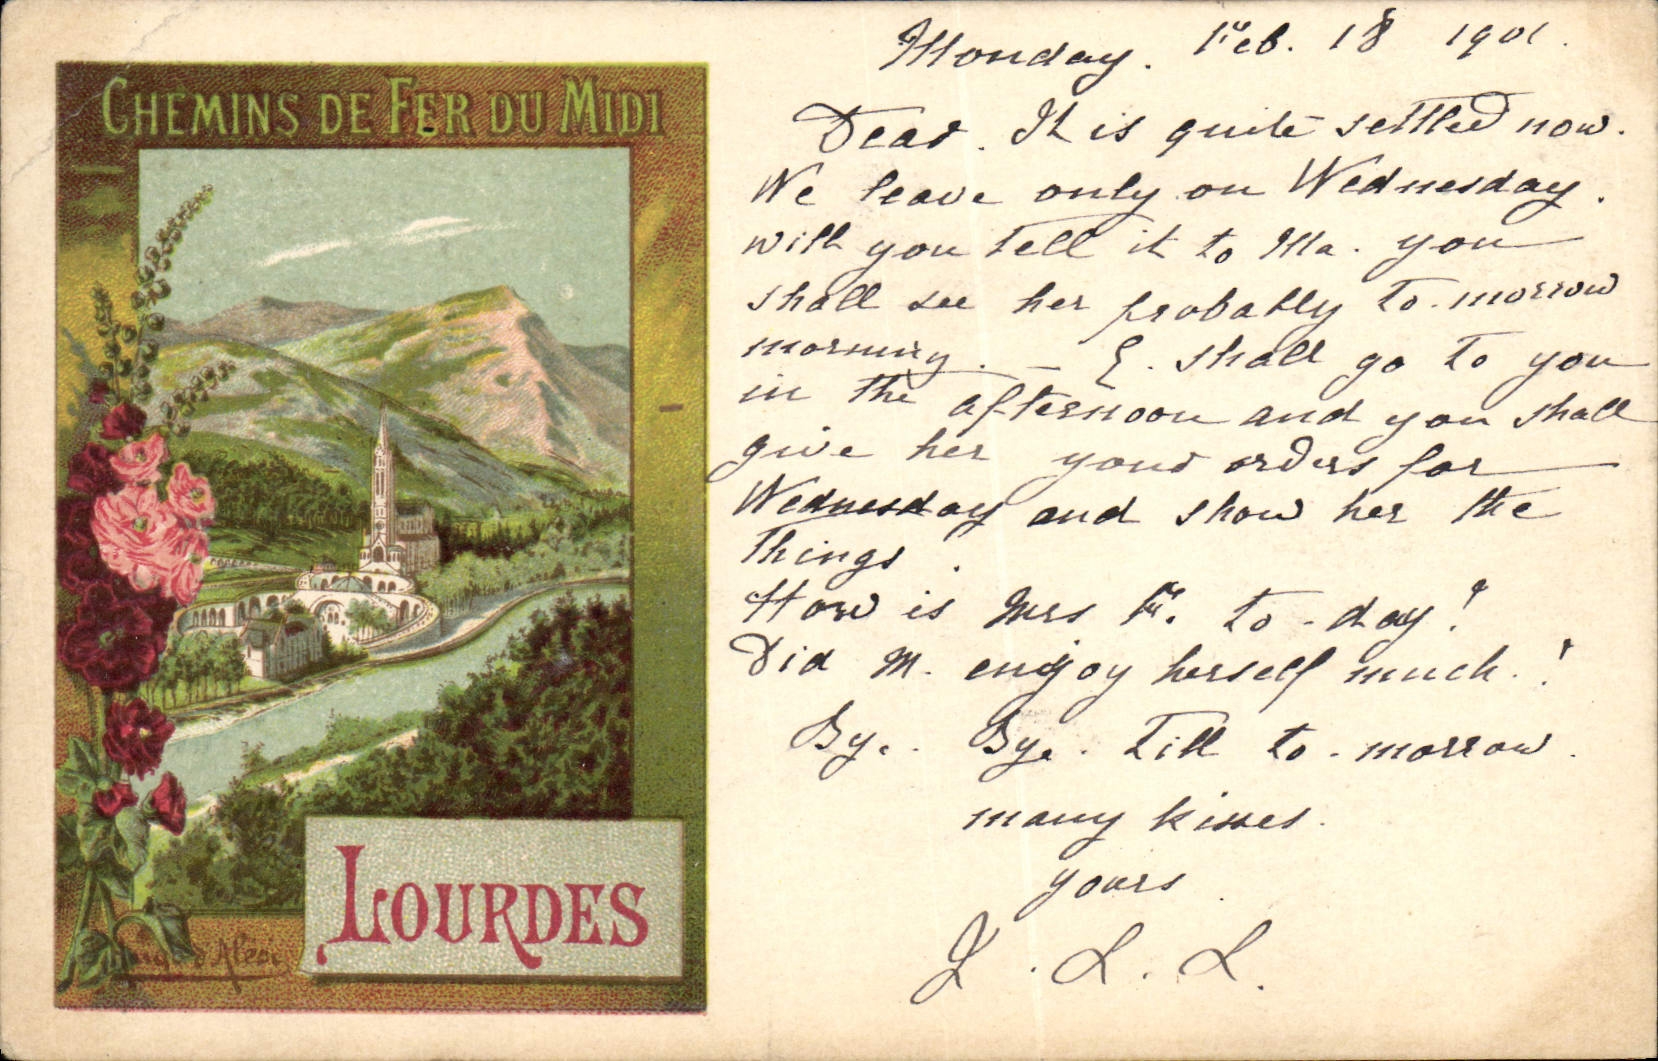 CHEMINS DE FER DU MIDI
LOURDES
Monday. Feb. 18 1901.
Dear. It is quite settled now.
We leave only on Wednesday.
will you tell it to Ma. you
shall see her probably to-morrow
morning. - E. shall go to you
in the afternoon and you shall
give her your orders for
Wednesday and show her the
things.
How is Mrs F. to-day?
Did M. enjoy herself much?
By. By. till to-morrow.
many kisses.
yours
L. L.